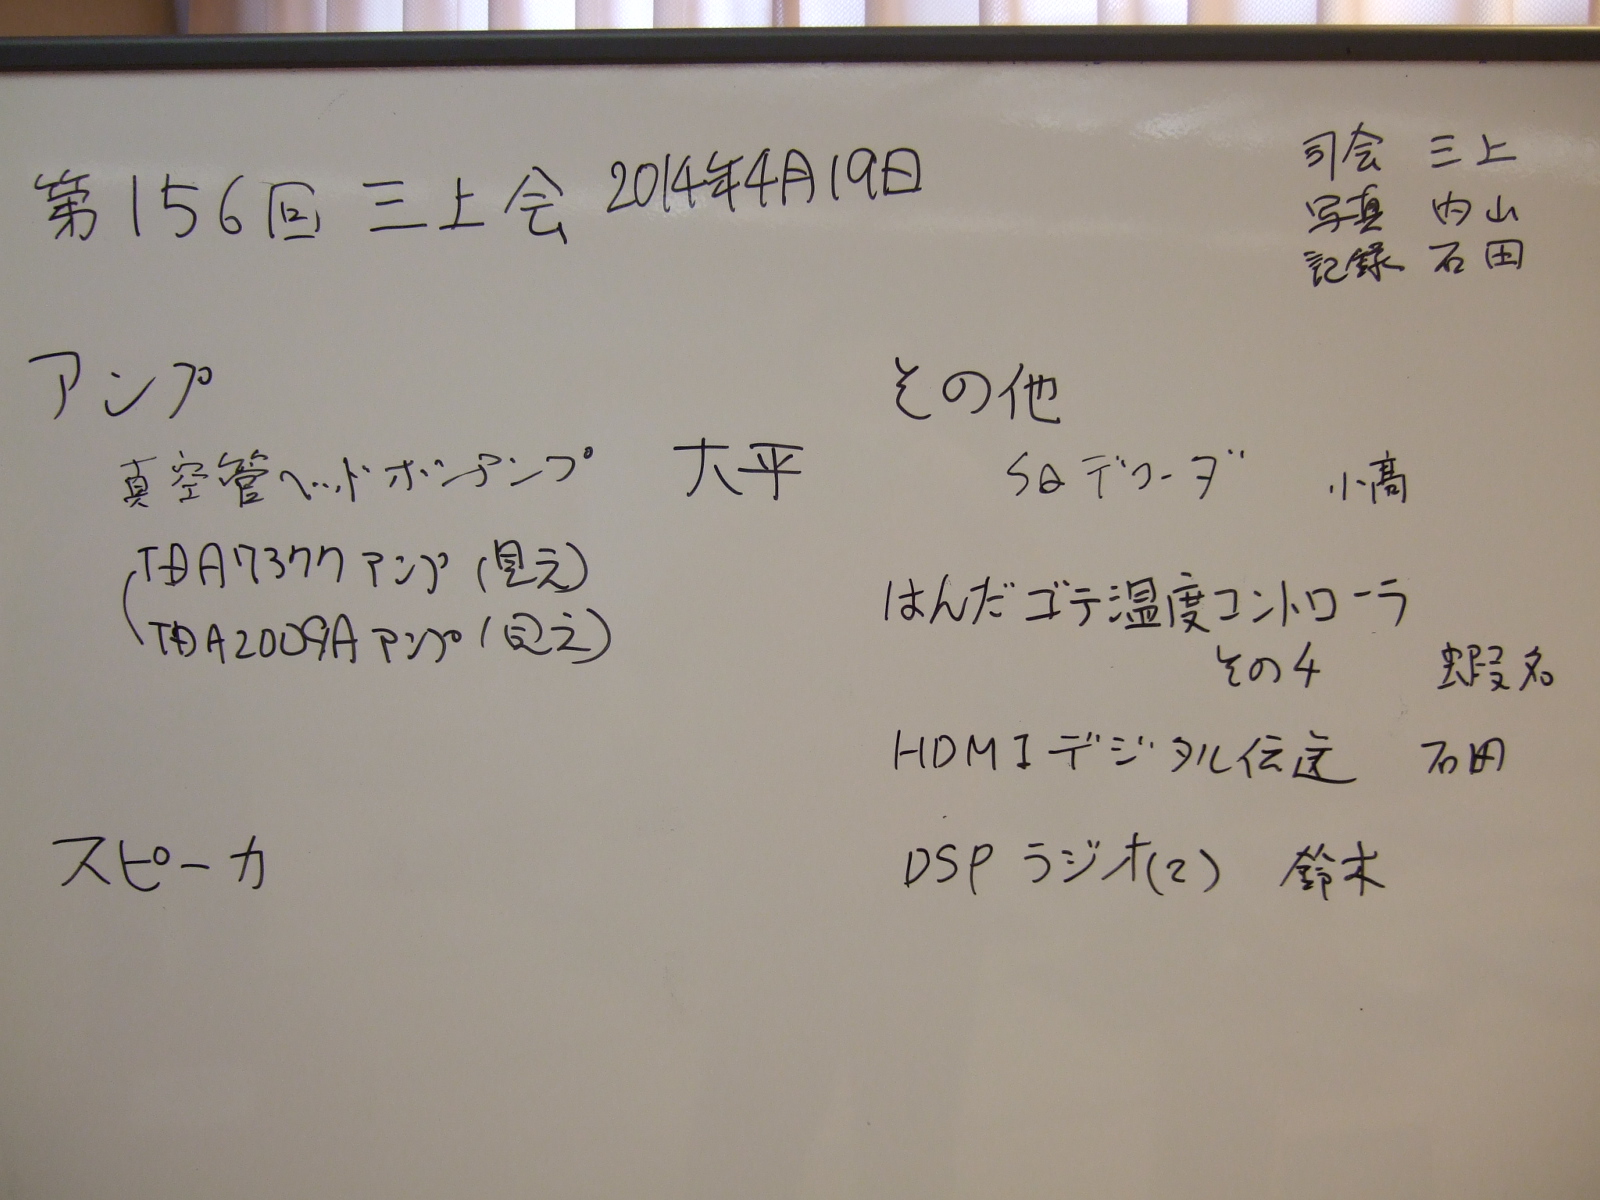 第156回 三上会 2014年4月19日
司会 三上
写真 内山
記録 石田
アンプ
真空管ヘッドホンアンプ 大平
TDA7377アンプ (見元)
TDA2009Aアンプ (見元)
スピーカ
その他
SQデコーダ 小高
はんだゴテ温度コントローラ
その4 蝦名
HDMIデジタル伝送 石田
DSPラジオ(2) 鈴木